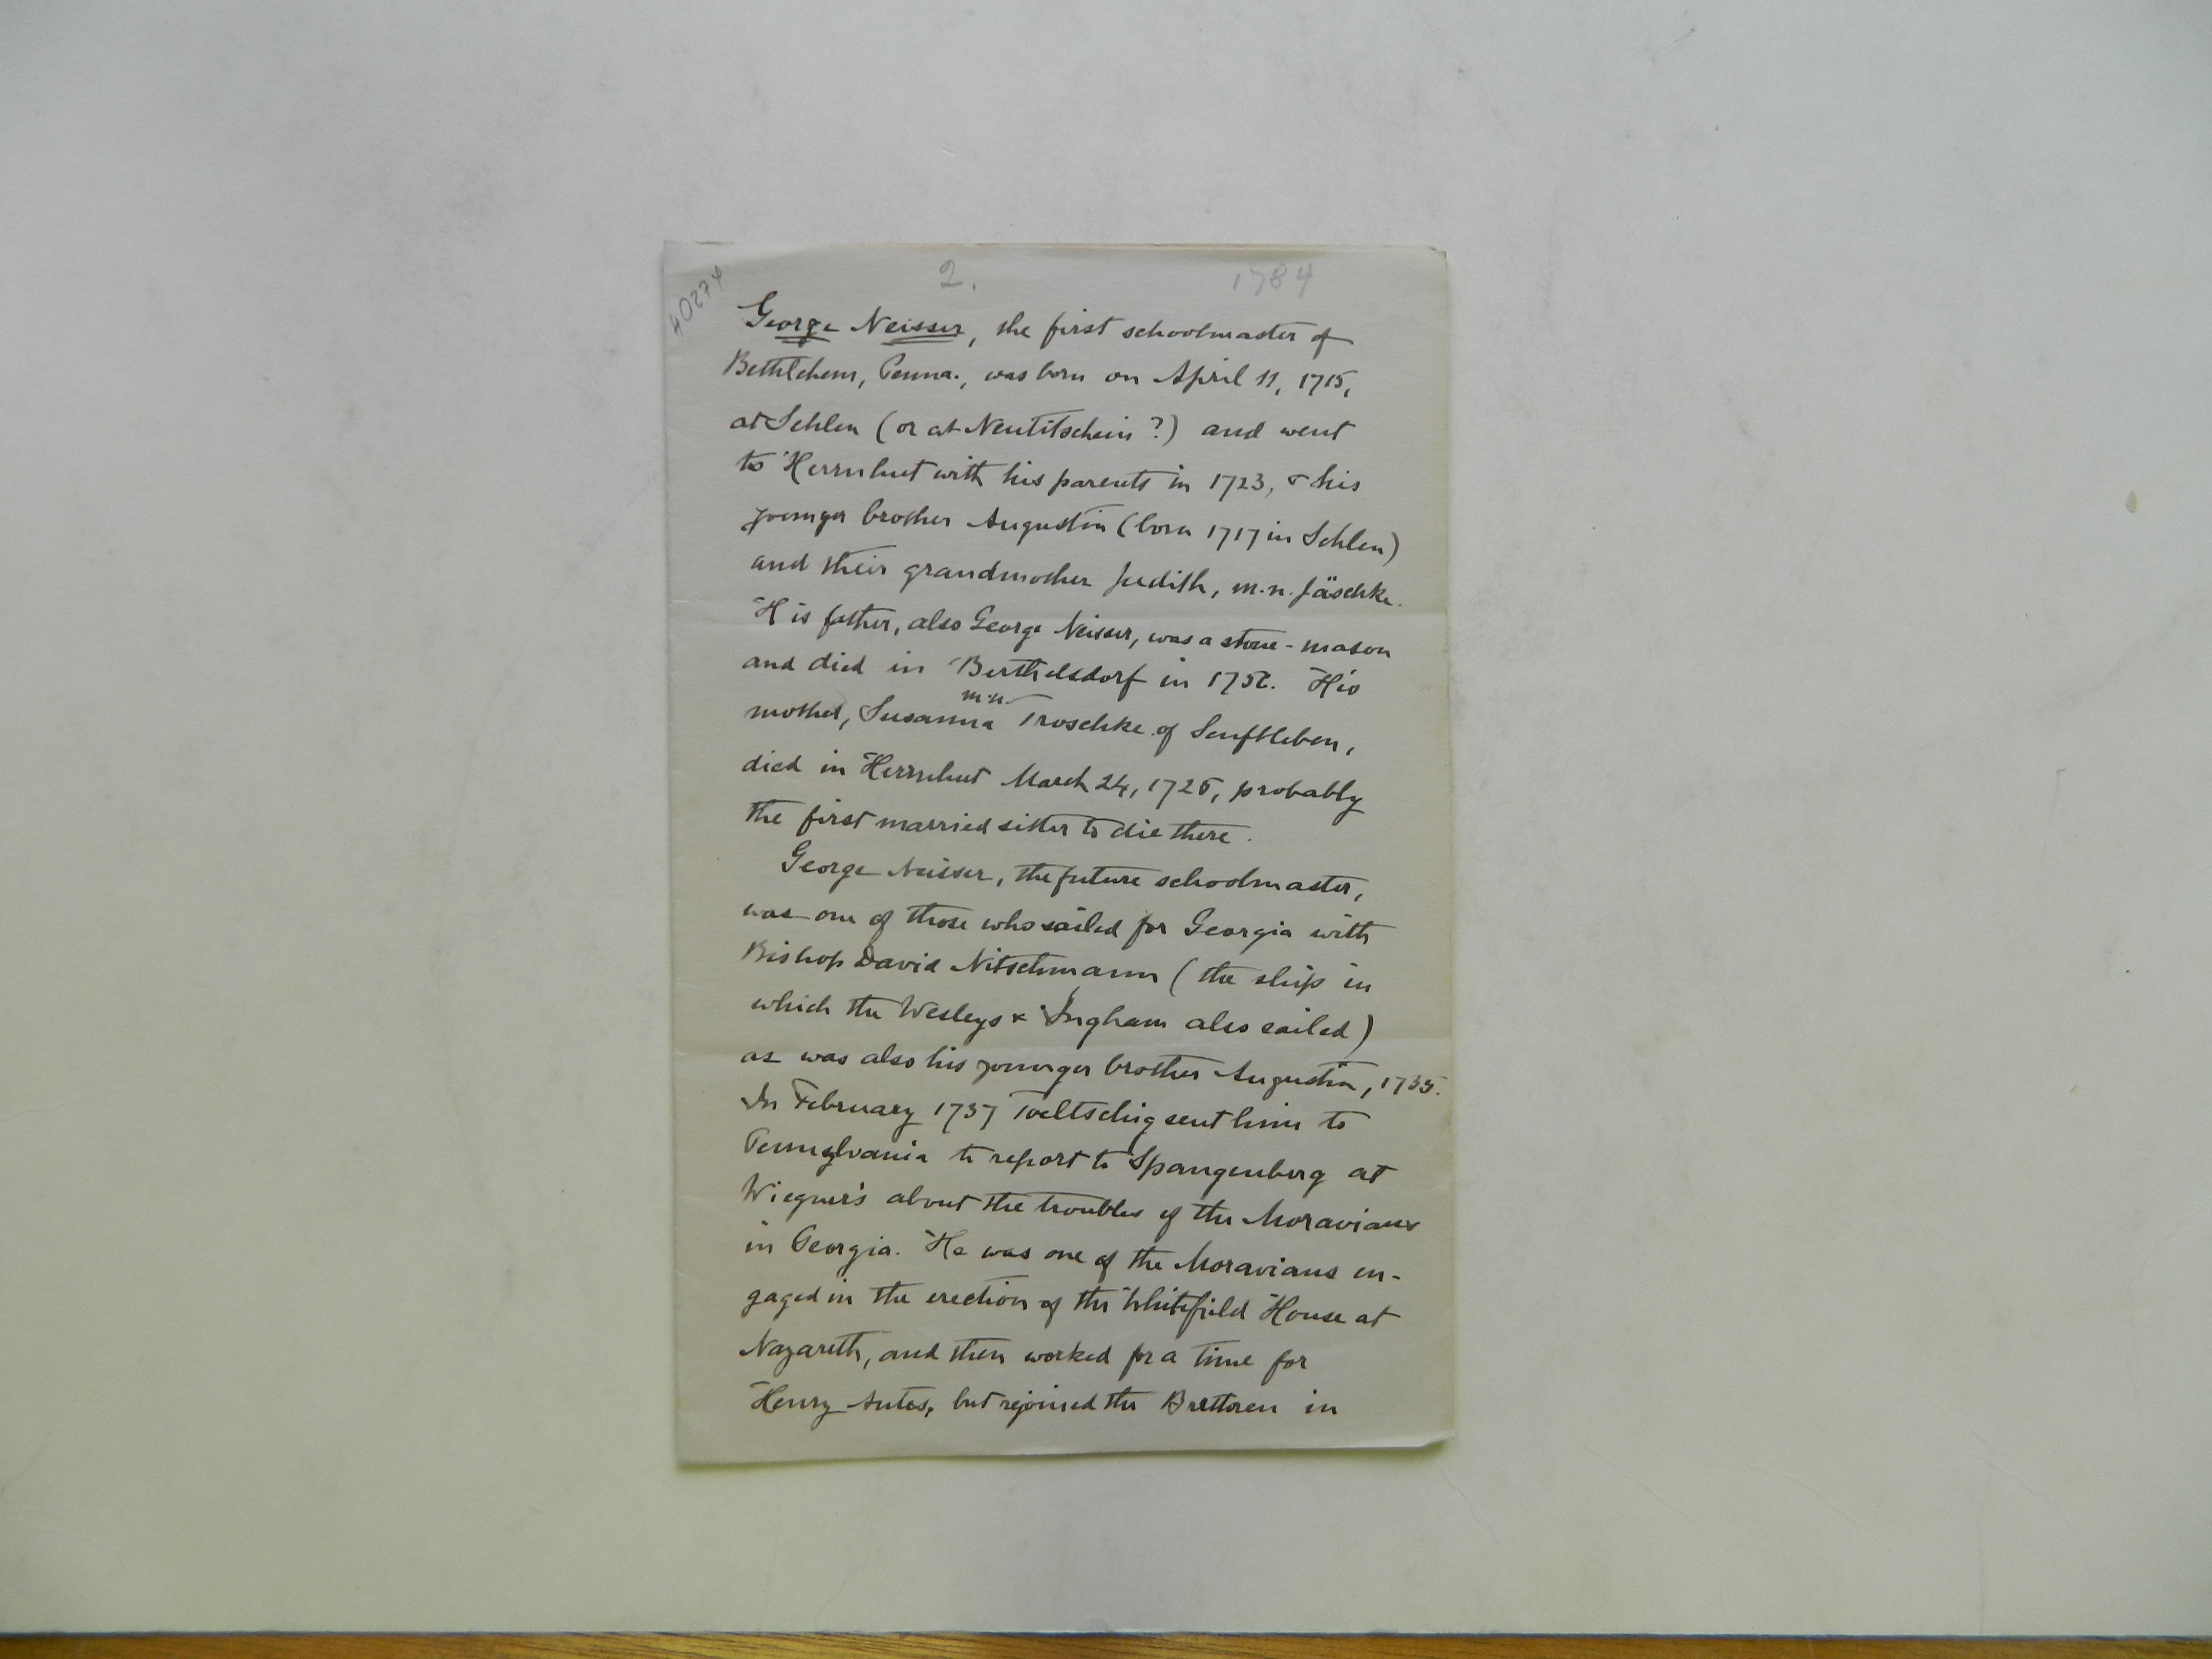 40274
2.
1784
George Neisser, the first schoolmaster of
Bethlehem, Penna., was born on April 11, 1715,
at Sehlen (or at Neutitschein?) and went
to Herrnhut with his parents in 1723, & his
younger brother Augustin (born 1717 in Sehlen)
and their grandmother Judith, m.n. Jäschke.
His father, also George Neisser, was a stone-mason
and died in Berthelsdorf in His
m.n.
mother, Susanna Troschke of Senftleben,
died in Herrnhut March 24, probably
the first married sister to die there.
George Neisser, the future schoolmaster,
was one of those who sailed for Georgia with
Bishop David Nitschmann (the ship in
which the Wesleys & Ingham also sailed)
as was also his younger brother Augustin, 1735.
In February 1737 Toeltschig sent him to
Pennsylvania to report to Spangenberg at
Wiegner's about the troubles of the Moravians
in Georgia. He was one of the Moravians en-
gaged in the erection of the Whitefield House at
Nazareth, and then worked for a time for
Henry Antes, but rejoined the Brethren in